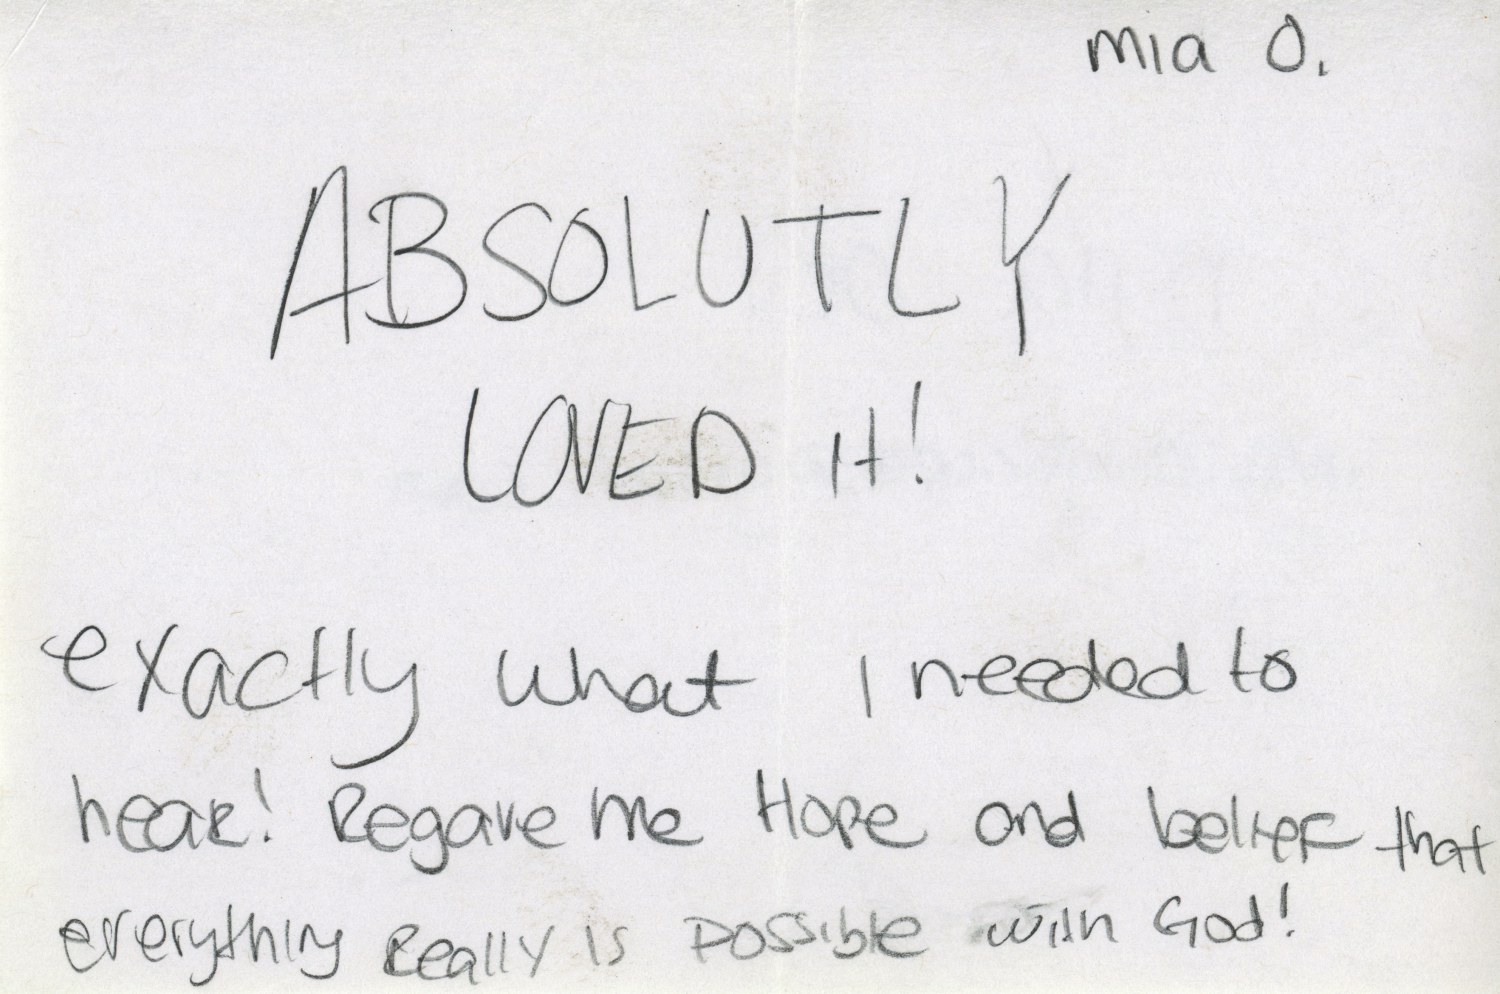 mia O.
ABSOLUTLY
LOVED it!
exactly what I needed to
hear! Regave me Hope and belief that
everything Really is possible with God!